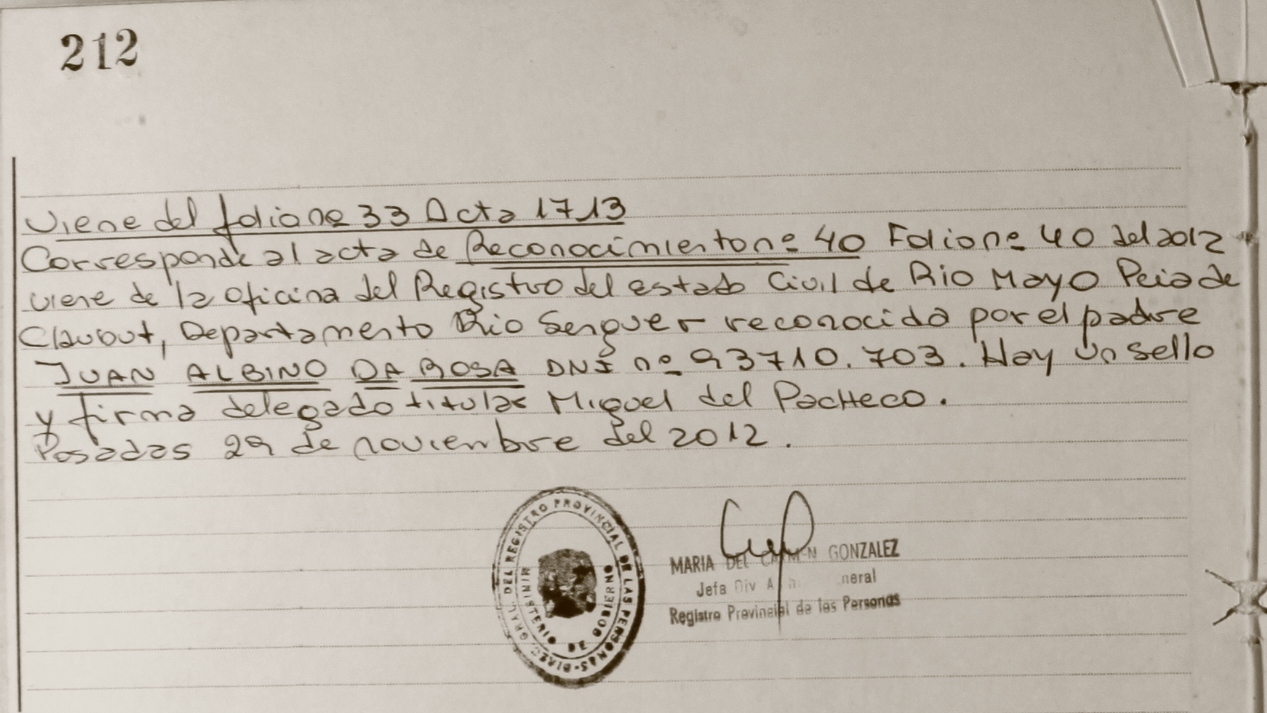 212
Viene del folio nº 33 Acta 1713
Corresponde al acta de Reconocimiento nº 40 Folio nº 40 del 2012
viene de la oficina del Registro del estado Civil de Rio Mayo Pcia de
Chubut, Departamento Rio Senguer reconocido por el padre
JUAN ALBINO DA ROSA DNI nº 93710.703. Hay un sello
y firma delegado titular Miguel del Pacheco.
Posadas 29 de noviembre del 2012.
DIREC. GRAL. DEL REGISTRO PROVINCIAL DE LAS PERSONAS
MINISTERIO DE GOBIERNO
MARIA DEL CARMEN GONZALEZ
Jefa Div
Registro Provincial de las Personas